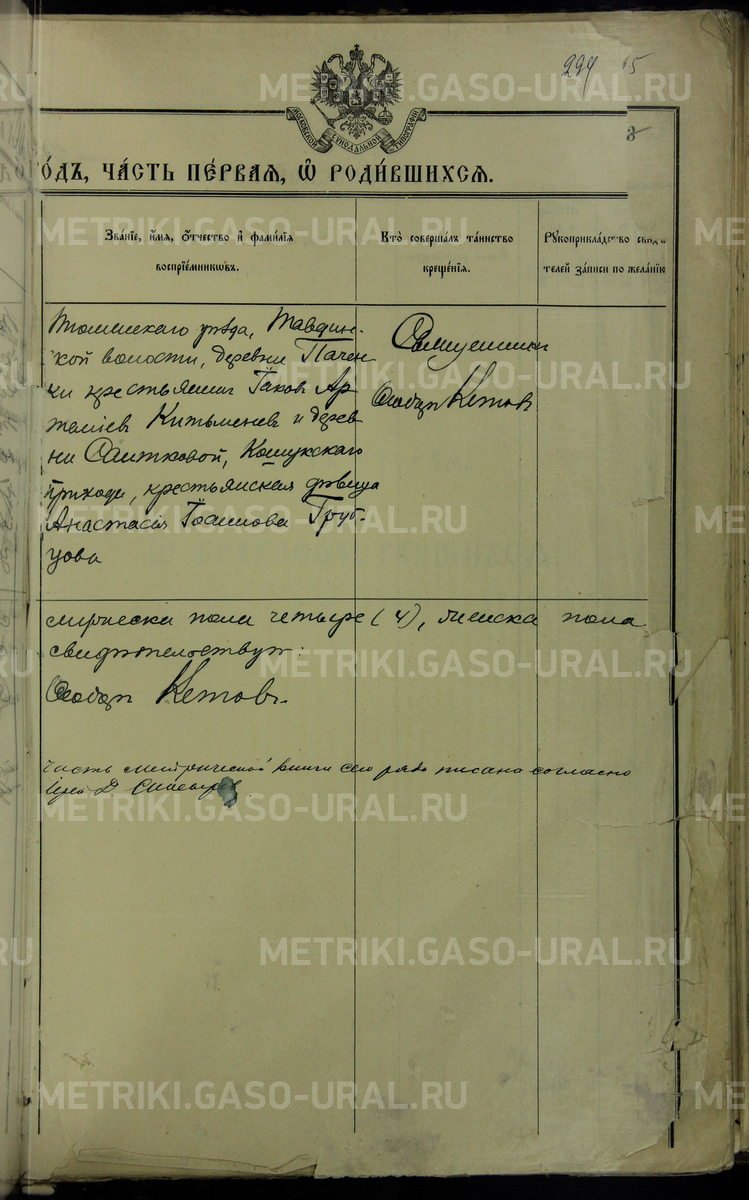 224 15
МОСКОВСКОЙ СѴНОДАЛЬНОЙ ТИПОГРАФІИ
3
го́дъ, ча́сть пе́рваѧ, ѡ҆ роди́вшихсѧ.
Зва́нїе, и҆́мѧ, ѻ҆́тчество и҆ фами́лїѧ воспрїе́мникѡвъ.
Кто̀ соверша́лъ та́инство креще́нїѧ.
Рꙋкоприкла́дство свидѣтелей за́писи по жела́нїю
уѣзда, Тавдин-
ской волости, деревни Пачен-
ки крестьянинъ Іаковъ Ар-
теміевъ Китьменевъ и дерев-
ни Саитковой, Кошукскаго
прихода, крестьянская дѣвица
Анастасія Іоаннова Труб-
цова
Священникъ
Ѳеодоръ Кетовъ
мужеска пола четыре (4), женска пола
свидѣтельствую:
Ѳеодоръ Кетовъ.
часть метрической книги сего года писана согласно
METRIKI.GASO-URAL.RU